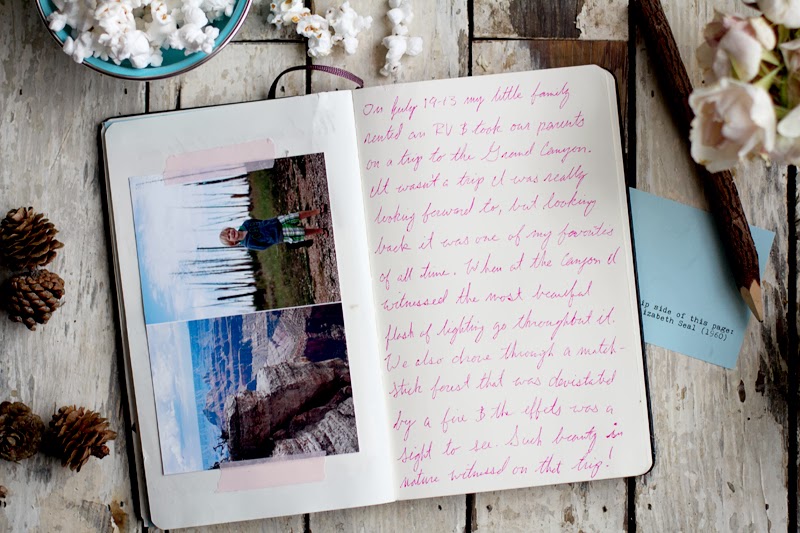 On July 19-13 my little family
rented an RV & took our parents
on a trip to the Grand Canyon.
It wasn't a trip I was really
looking forward to, but looking
back it was one of my favorites
of all time. When at the Canyon I
witnessed the most beautiful
flash of lighting go throughout it.
We also drove through a match-
stick forest that was devistated
by a fire & the effects was a
sight to see. Such beauty in
nature witnessed on that trip!
ip side of this page:
izabeth Seal (1960)